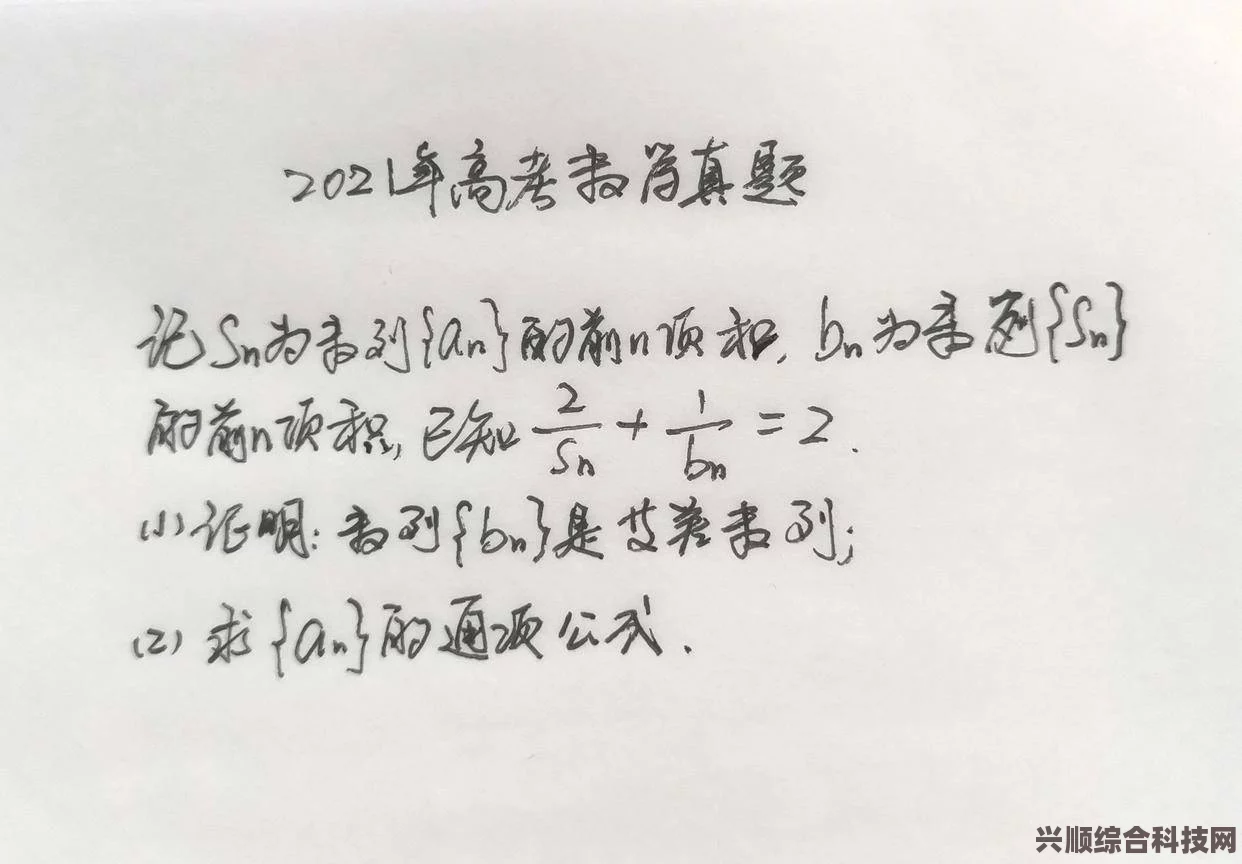 2021年高考数学真题
记Sn为数列{an}的前n项和, bn为数列{Sn}
的前n项积, 已知 2/Sn + 1/bn = 2.
(1) 证明: 数列{bn}是等差数列;
(2) 求{an}的通项公式.
兴顺综合科技网